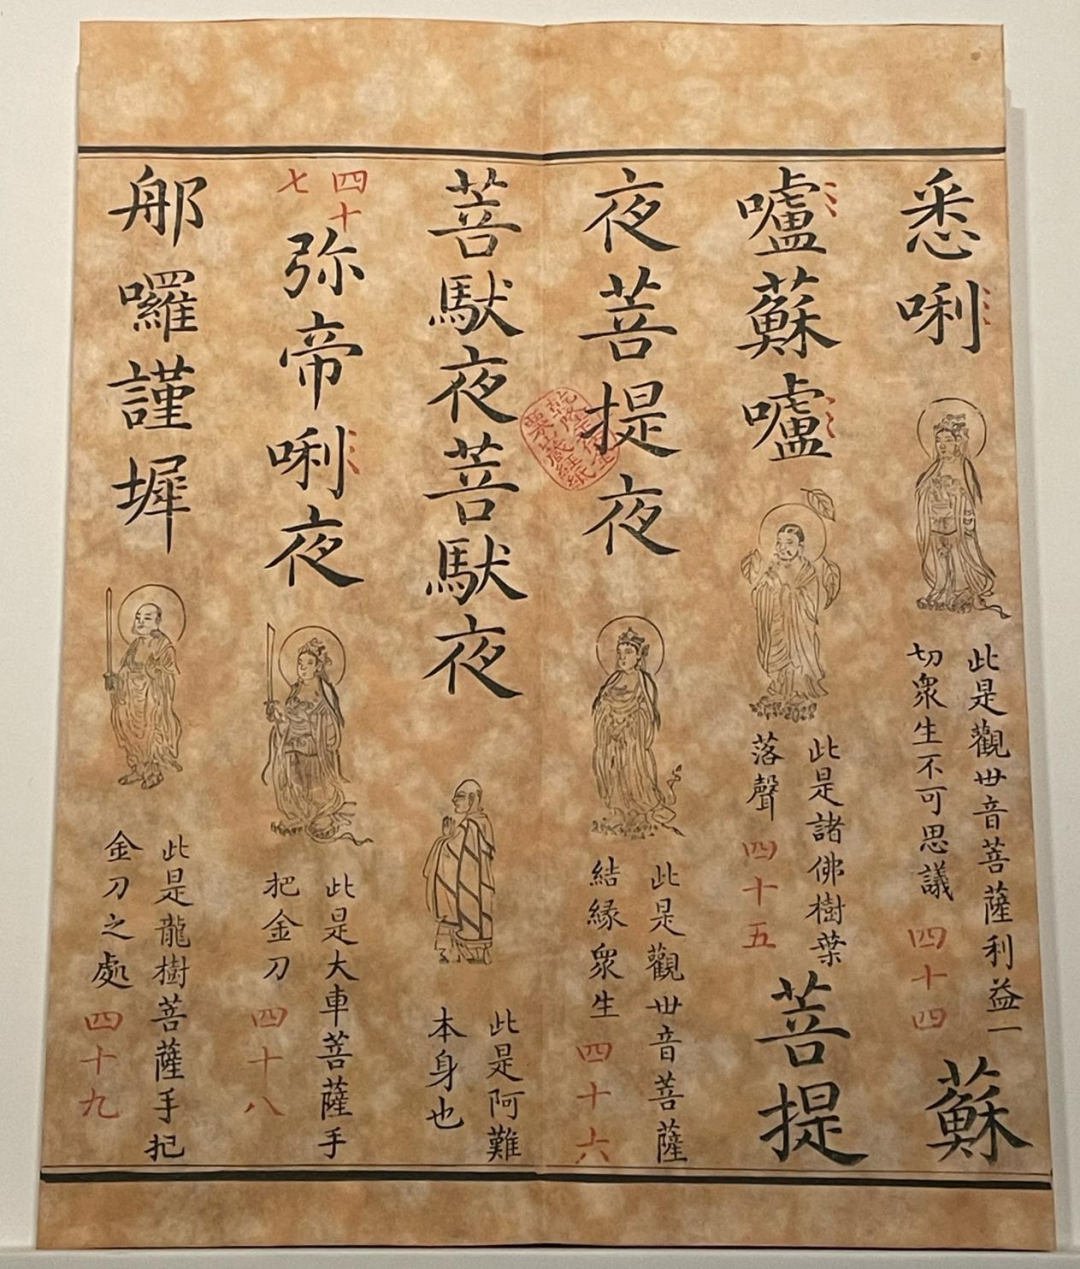 悉唎
此是觀世音菩薩利益一
切衆生不可思議
四十四
蘇
嚧蘇嚧
此是諸佛樹葉
落聲
四十五
菩提
夜菩提夜
此是觀世音菩薩
結緣衆生
四十六
菩馱夜菩馱夜
此是阿難
本身也
四十
七
弥帝唎夜
此是大車菩薩手
把金刀
四十八
那囉謹墀
此是龍樹菩薩手把
金刀之處
四十九